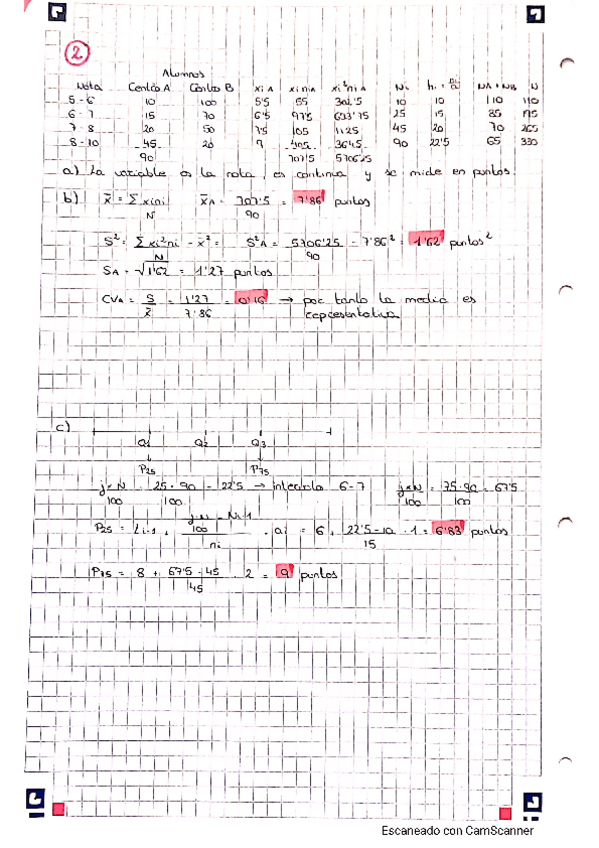 2
Alumnos
Nota Centro A Centro B xi A xi ni A xi² ni A Ni hi = ni/a NA + NB N
5 - 6 10 100 5'5 55 302'5 10 10 110 110
6 - 7 15 70 6'5 97'5 633'75 25 15 85 195
7 - 8 20 50 7'5 105 1125 45 20 70 265
8 - 10 45 20 9 405 3645 90 22'5 65 330
90 707'5 5706'25
a) La variable es la nota, es continua y se mide en puntos.
b) x̄ = Σ xi ni / N x̄A = 707'5 / 90 = 7'86 puntos
S² = Σ xi² ni / N - x̄² = S²A = 5706'25 / 90 - 7'86² = 1'62 puntos²
SA = √1'62 = 1'27 puntos
CVA = S / x̄ = 1'27 / 7'86 = 0'16 → por tanto la media es
representativa
c)
Q1 Q2 Q3
P25 P75
j × N / 100 = 25 · 90 / 100 = 22'5 → intervalo 6 - 7 j × N / 100 = 75 · 90 / 100 = 67'5
P25 = Li-1 + (j · N / 100 - Ni-1) / ni · ai = 6 + (22'5 - 10) / 15 · 1 = 6'83 puntos
P75 = 8 + (67'5 - 45) / 45 · 2 = 9 puntos
Escaneado con CamScanner